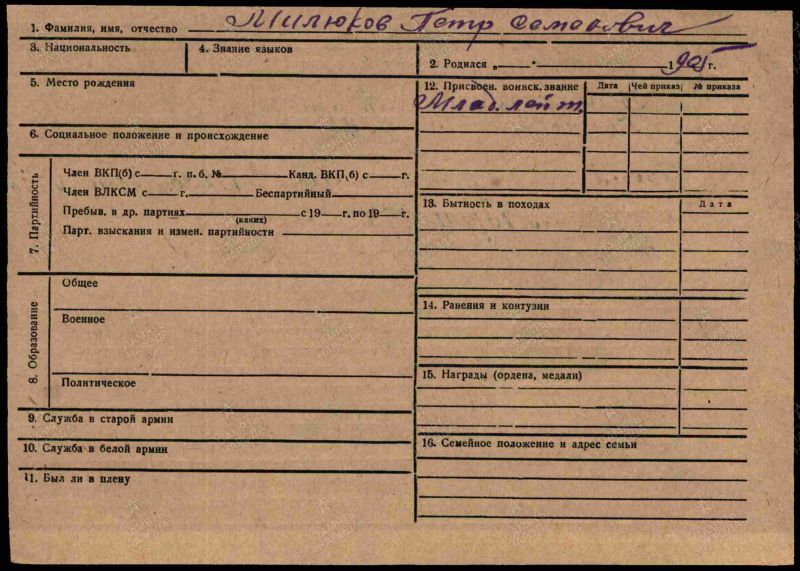 1. Фамилия, имя, отчество Милюков Петр Семенович
3. Национальность
4. Знание языков
2. Родился „ “ 1905 г.
5. Место рождения
6. Социальное положение и происхождение
7. Партийность
Член ВКП(б) с г. п. б. № Канд. ВКП(б) с г.
Член ВЛКСМ с г. Беспартийный
Пребыв. в др. партиях с 19 г. по 19 г.
(каких)
Парт. взыскания и измен. партийности
8. Образование
Общее
Военное
Политическое
9. Служба в старой армии
10. Служба в белой армии
11. Был ли в плену
12. Присвоен. воинск. звание Дата Чей приказ № приказа
Млад. лейт.
13. Бытность в походах Дата
14. Ранения и контузии
15. Награды (ордена, медали)
16. Семейное положение и адрес семьи
ПАМЯТЬ НАРОДА